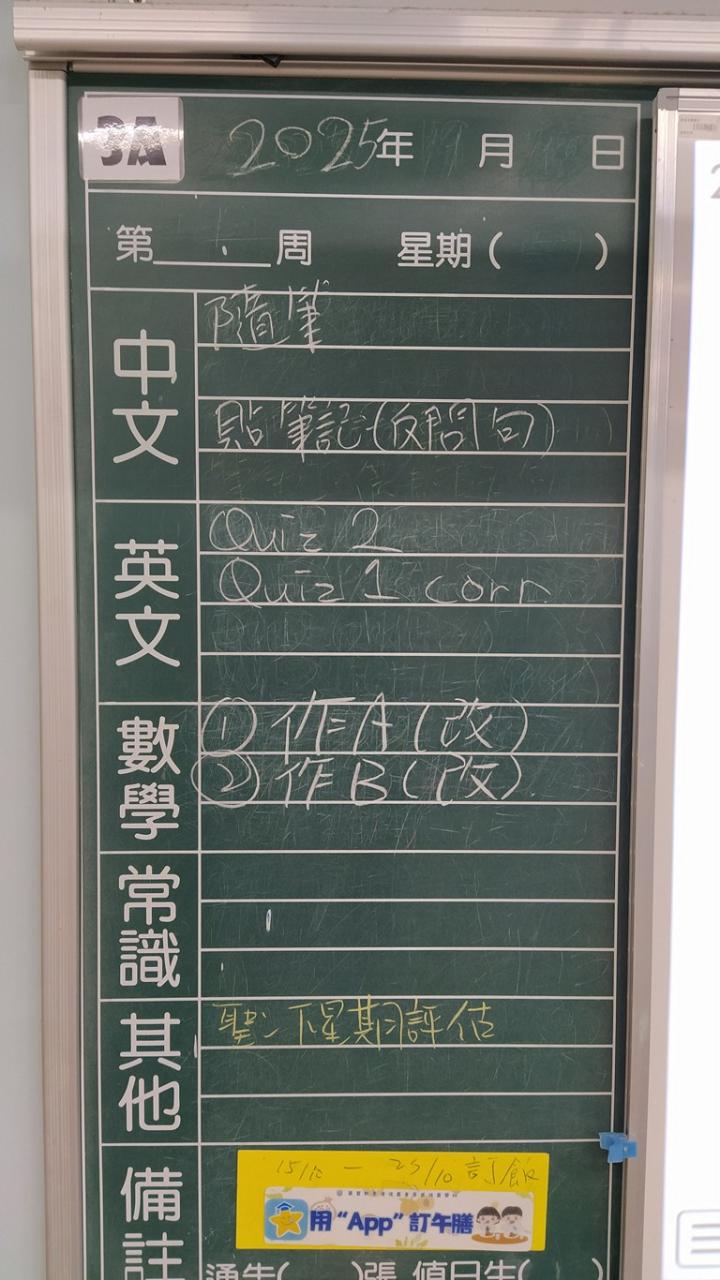 3A 2025年 月 日
第 周 星期( )
中文
隨筆
貼筆記(反問句)
英文
Quiz 2
Quiz 1 corr
數學
① 作A(改)
② 作B(改)
常識
其他
聖:下星期評估
備註
訂飯
用“App”訂午膳
通告( )張 值日生( )